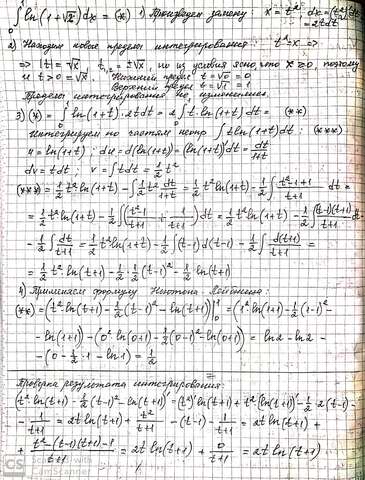 ∫₀¹ ln(1+√x)dx = (*) 1) Произведем замену: x = t² dx = (t²)'dt = 2tdt
2) Находим новые пределы интегрирования: t² = x =>
=> |t| = √x, t₁,₂ = ±√x, но из условия ясно, что x ≥ 0, поэтому
и t > 0 = √x. Нижний предел t = √0 = 0
Верхний предел t = √1 = 1
Пределы интегрирования не изменились.
3) (*) = ∫₀¹ ln(1+t)·2tdt = 2∫₀¹ t·ln(1+t)dt = (**)
Интегрируем по частям неопр ∫tln(1+t)dt: (***)
u = ln(1+t); du = d(ln(1+t)) = (ln(1+t))'dt = dt/(1+t)
dv = tdt; v = ∫tdt = ½t²
(***) = ½t²ln(1+t) - ∫½t² dt/(t+1) = ½t²ln(1+t) - ½∫(t²-1+1)/(t+1) dt =
= ½t²ln(1+t) - ½∫((t²-1)/(t+1) + 1/(t+1))dt = ½t²ln(1+t) - ½∫(t-1)(t+1)/(t+1) dt -
- ½∫dt/(t+1) = ½t²ln(1+t) - ½∫(t-1)d(t-1) - ½∫d(t+1)/(t+1) =
= ½t²·ln(t+1) - ½·½(t-1)² - ½ln(t+1)
4) Применяем формулу Ньютона Лейбница:
(**) = (t²ln(t+1) - ½(t-1)² - ln(t+1))|₀¹ = (1²ln(1+1) - ½(1-1)² -
- ln(1+1)) - (0²ln(0+1) - ½(0-1)² - ln(0+1)) = ln2 - ln2 -
- (0 - ½·1 - ln1) = ½
Проверка результата интегрирования:
(t²ln(t+1) - ½(t-1)² - ln(t+1))' = (t²)'ln(t+1) + t²(ln(t+1))' - ½·2(t-1) -
- 1/(t+1) = 2tln(t+1) + t²/(t+1) - (t-1) - 1/(t+1) = 2tln(t+1) +
+ (t² - (t-1)(t+1) - 1)/(t+1) = 2tln(t+1) + 0/(t+1) = 2tln(t+1)
CS CamScanner